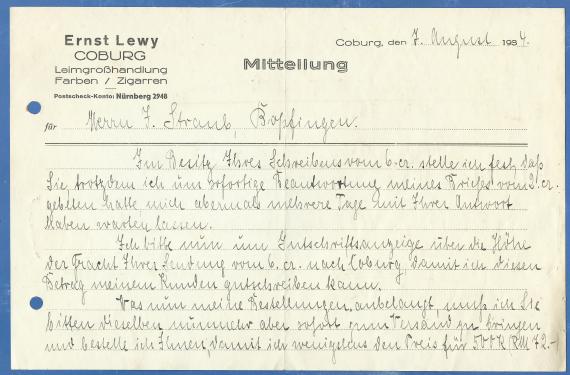 Ernst Lewy
COBURG
Leimgroßhandlung
Farben / Zigarren
Postscheck-Konto: Nürnberg 2948
Coburg, den 7. August 1934.
Mitteilung
für Herrn J. Straub, Bopfingen.
Im Besitz Ihres Schreibens vom 6. cr. stelle ich fest, daß
Sie, trotzdem ich um sofortige Beantwortung meines Briefes vom 2. cr.
gebeten hatte, mich abermals mehrere Tage mit Ihrer Antwort
haben warten lassen.
Ich bitte nun um Gutschriftsanzeige über die Höhe
der Fracht Ihrer Sendung vom 6. cr. nach Coburg, damit ich diesen
Betrag meinem Kunden gutschreiben kann.
Was nun meine Bestellungen, anbelangt, muß ich Sie
bitten dieselben nunmehr aber sofort zum Versand zu bringen
und bestelle ich Ihnen, damit ich wenigstens den Preis für 500 K RM 72.-